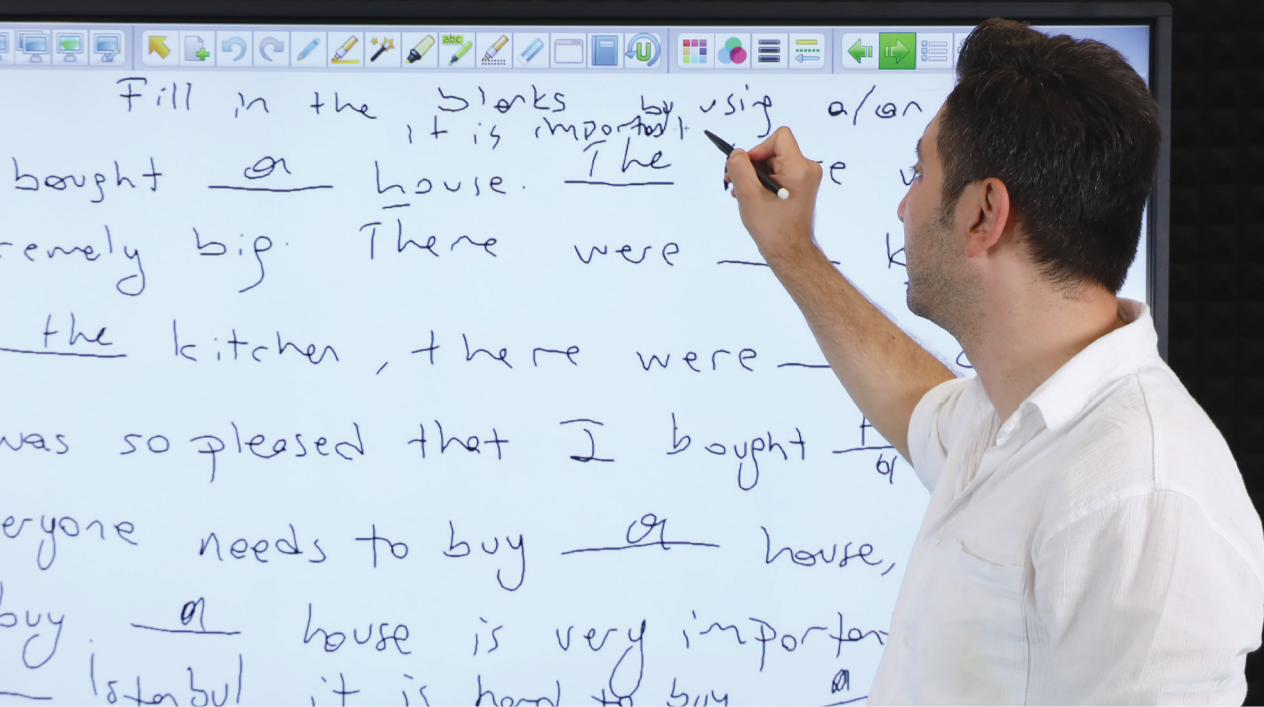 abc
Fill in the blanks by using a/an
it is important
bought a house. The
remely big. There were
the kitchen, there were
was so pleased that I bought
eryone needs to buy a house,
buy. a house is very importan
Istanbul it is hard to buy a